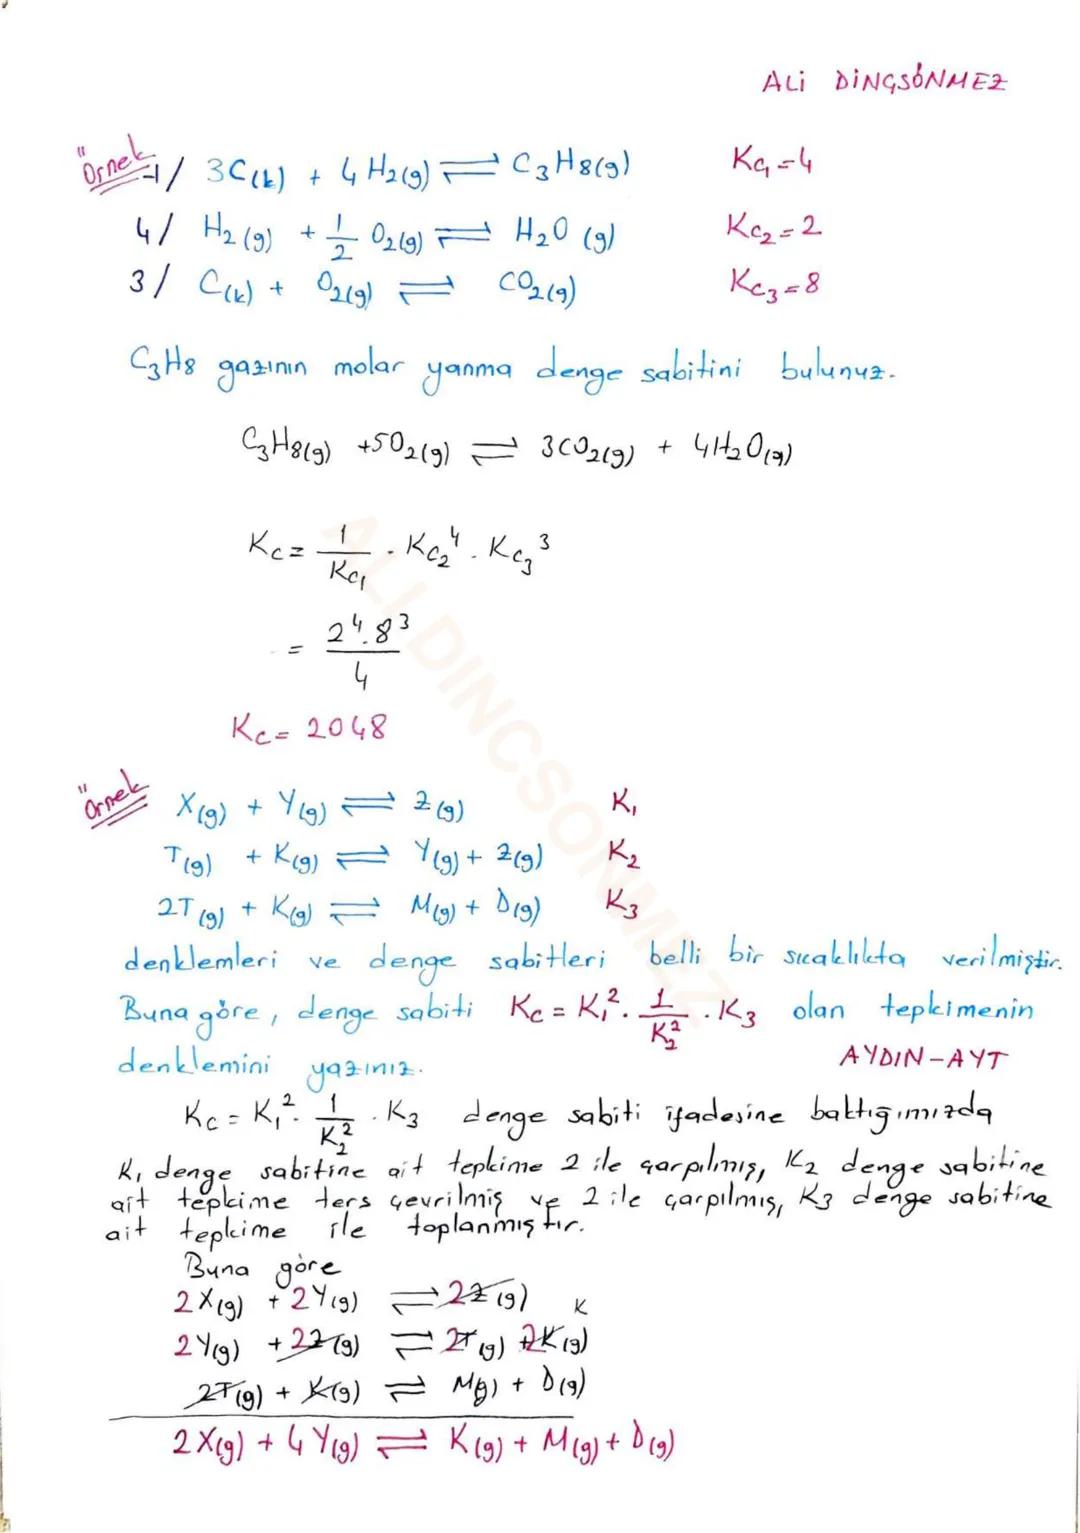 ALİ DİNÇSÖNMEZ
Örnek
-1/ 3C(k) + 4H2(g) ⇌ C3H8(g) Kc1=4
4/ H2(g) + 1/2 O2(g) ⇌ H2O(g) Kc2=2
3/ C(k) + O2(g) ⇌ CO2(g) Kc3=8
C3H8 gazının molar yanma denge sabitini bulunuz.
C3H8(g) +5O2(g) ⇌ 3CO2(g) + 4H2O(g)
Kc= 1/Kc1 . Kc2^4 . Kc3^3
= 2^4.8^3/4
Kc= 2048
Örnek
X(g) + Y(g) ⇌ Z(g) K1
T(g) + K(g) ⇌ Y(g) + Z(g) K2
2T(g) + K(g) ⇌ M(g) + D(g) K3
denklemleri ve denge sabitleri belli bir sıcaklıkta verilmiştir.
Buna göre, denge sabiti Kc = K1^2 . 1/K2^2 . K3 olan tepkimenin
denklemini yazınız. AYDIN-AYT
Kc = K1^2 . 1/K2^2 . K3 denge sabiti ifadesine baktığımızda
K1 denge sabitine ait tepkime 2 ile çarpılmış, K2 denge sabitine
ait tepkime ters çevrilmiş ve 2 ile çarpılmış, K3 denge sabitine
ait tepkime ile toplanmıştır.
Buna göre
2X(g) + 2Y(g) ⇌ 2Z(g)
K
2Y(g) + 2Z(g) ⇌ 2T(g) + 2K(g)
2T(g) + K(g) ⇌ M(g) + D(g)
2X(g) + 4Y(g) ⇌ K(g) + M(g) + D(g)
ALI DINCSONMEZ